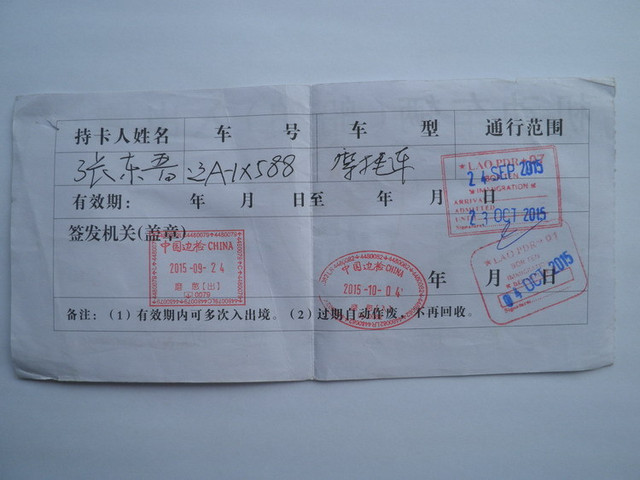 持卡人姓名 车 号 车 型 通行范围
张东晋 辽A-1X588 摩托车
有效期： 年 月 日至 年 月 日
签发机关(盖章)
中国边检CHINA
2015-09-24
磨憨[出]
中国边检CHINA
2015-10-04
LAO.PDR-07
BOTEN
IMMIGRATION
24 SEP 2015
ARRIVAL
ADMITTED
UNTIL
23 OCT 2015
LAO.PDR-07
BOTEN
04 OCT 2015
年 月 日
备注：(1)有效期内可多次入出境。(2)过期自动作废，不再回收。